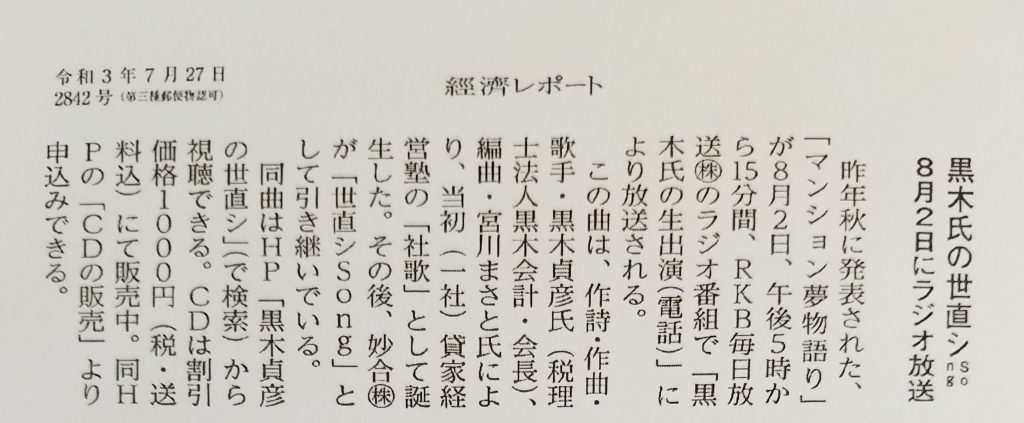 經濟レポート
令和3年7月27日
2842号(第三種郵便物認可)
黒木氏の世直シsong
8月2日にラジオ放送
昨年秋に発表された、
「マンション夢物語り」
が8月2日、午後5時か
ら15分間、RKB毎日放
送㈱のラジオ番組で「黒
木氏の生出演(電話)」に
より放送される。
この曲は、作詩・作曲・
歌手・黒木貞彦氏(税理
士法人黒木会計・会長)、
編曲・宮川まさと氏によ
り、当初(一社)貸家経
営塾の「社歌」として誕
生した。その後、妙合㈱
が「世直シSong」と
して引き継いでいる。
同曲はHP「黒木貞彦
の世直シ」(で検索)から
視聴できる。CDは割引
価格1000円(税・送
料込)にて販売中。同H
Pの「CDの販売」より
申込みできる。